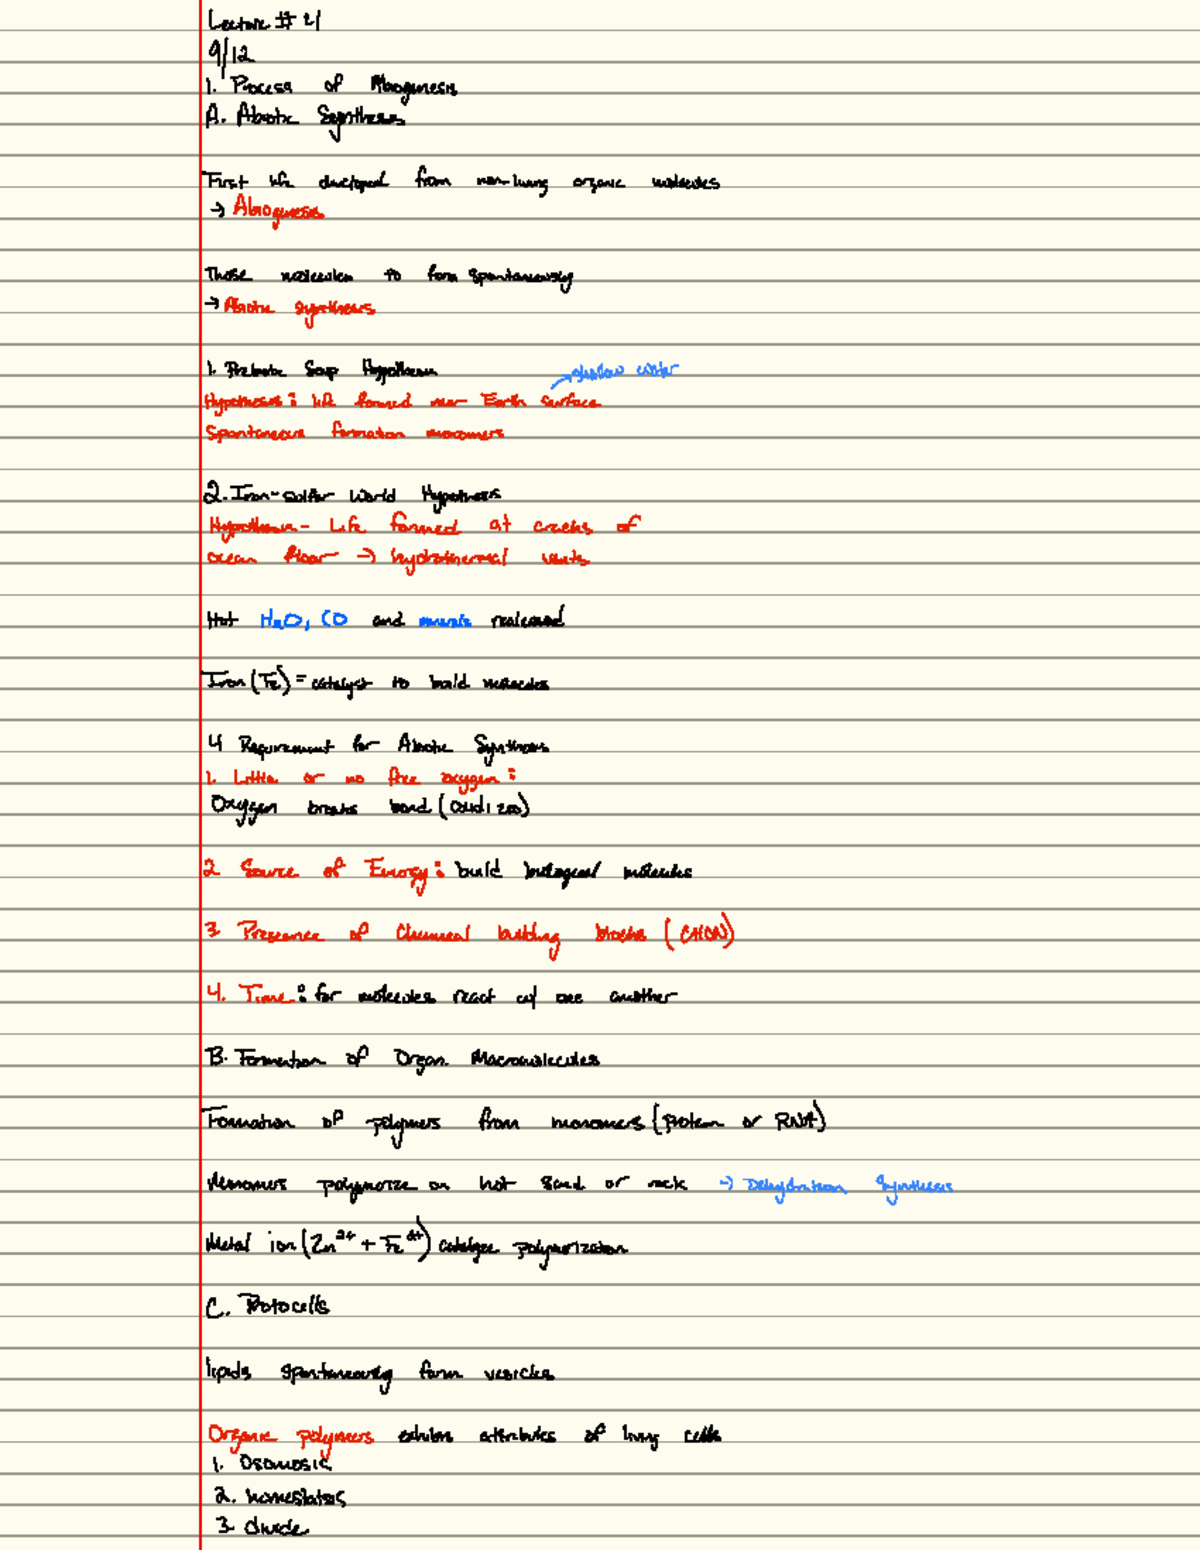 Lecture # 21
9/12
1. Process of Abiogenesis
A. Abiotic Synthesis
First life developed from non-living organic molecules
→ Abiogenesis
Those molecules to form spontaneously
→ Abiotic synthesis
1. Prebiotic Soup Hypothesis
→ shallow water
Hypothesis: life formed near Earth surface
Spontaneous formation monomers
2. Iron-sulfur World Hypothesis
Hypothesis - Life formed at cracks of
ocean floor → hydrothermal vents
Hot H₂O, CO and minerals released
Iron (Fe) = catalyst to build molecules
4 Requirement for Abiotic Synthesis
1. Little or no free oxygen:
Oxygen breaks bond (oxidizes)
2 Source of Energy: build biological molecules
3. Presence of Chemical building blocks (CHON)
4. Time: for molecules react w/ one another
B. Formation of Organ. Macromolecules
Formation of polymers from monomers (protein or RNA)
Monomers polymerize on hot sand or rock → Dehydration Synthesis
Metal ion (Zn²⁺ + Fe²⁺) catalyze polymerization
C. Protocells
lipids spontaneously form vesicles
Organic polymers exhibits attributes of living cells
1. Osomosis
2. homeostasis
3. divide